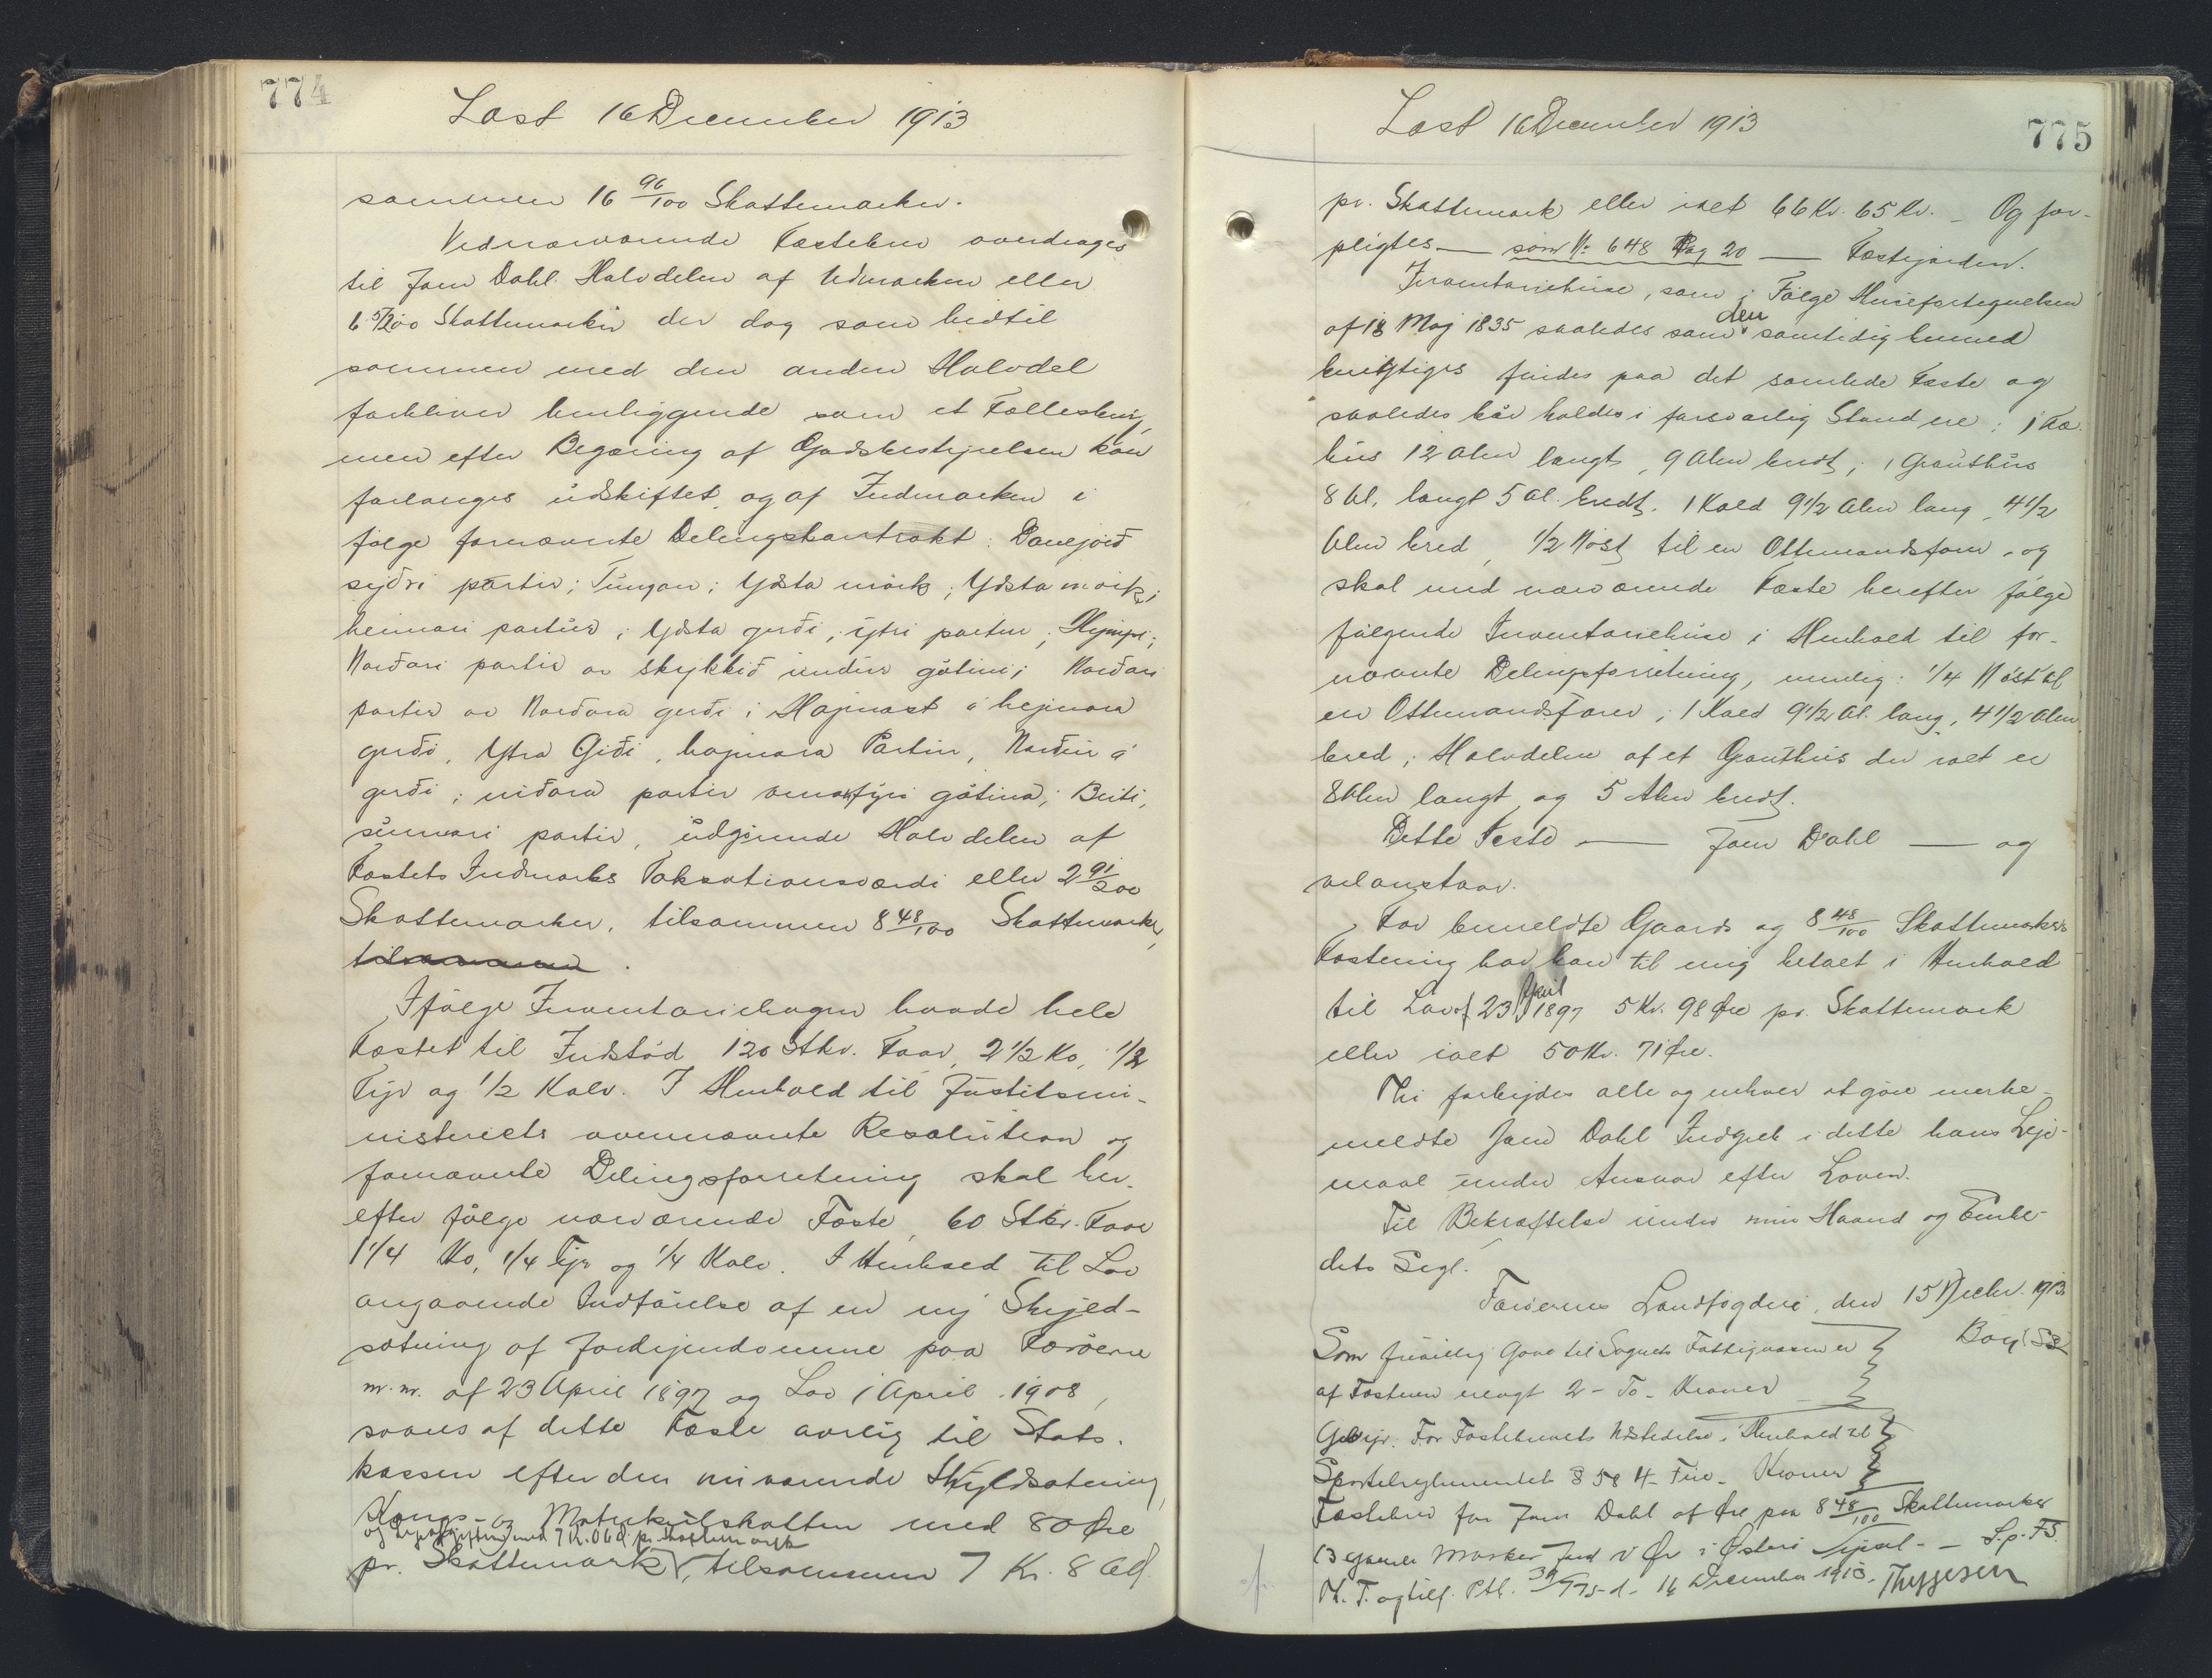 774
Læst 16 December 1913
sammen 16 96/100 Skattemarker.
Vednærværende Fæstebrev overdrages
til Joen Dahl Halvdelen af Udmarken eller
6 57/200 Skattemarker der dog som hidtil
sammen med den anden Halvdel
forbliver henliggende som et Fællesskab,
men efter Begæring af Godsbestyrelsen kan
forlanges udskiftet, og af Indmarken i
følge fornævnte Delingskontrakt:
syðri partir; Tungan; Ysta mörk; Ysta mörk,
heimari partur; Ysta gerði, ytri partur;
Norðari partir av skykkið undir gøtuni; Norðari
partir av Norðara gerði i Højnast á hejmara
gerði, Ytra Giði, hojmara Partir, Norður á
gerði; niðara partir gøtuna; Beiti,
sunnari partir, udgørende Halvdelen af
Fæstets Indmarks Taksationsværdi eller 2 91/200
Skattemarker, tilsammen 8 48/100 Skattemarker,
tilsammen.
Ifølge Inventariebogen havde hele
Fæstet til Indstød 120 Stkr. Faar, 2 1/2 Ko, 1/2
Tyr og 1/2 Kalv. I Henhold til Justitsmi-
nisteriets ovennævnte Resolution og
fornævnte Delingsforretning skal her-
efter følge nærværende Fæste, 60 Stkr. Faar
1 1/4 Ko, 1/4 Tyr og 1/4 Kalv. I Henhold til Lov
angaaende Indførelse af en ny Skyld-
sætning af Jordejendomme paa Færøerne
m.m. af 23 April 1897 og Lov 1 April 1908,
svares af dette Fæste aarlig til Stats-
kassen efter den nuværende Skyldsætning,
Kongs- og Matrikulskatten med 80 Øre
og med 7 Kr. 06 Ø. pr. Skattemark
pr. Skattemark, tilsammen 7 Kr. 86 Ø.
775
Læst 16 December 1913
pr. Skattemark eller ialt 66 Kr. 65 Kr. - Og for-
pligtes — som No 648 Pag 20 — Fæstejorden.
Inventariehuse, som i Følge Husefortegnelsen
af 18 Maj 1835 saaledes som den samtidig hermed
berigtiges findes paa det samlede Fæste og
saaledes bør holdes i forsvarlig Stand ere: 1 Ko-
hus 12 Alen langt, 9 Alen bredt; 1 Grouthus
8 Al. langt 5 Al. bredt. 1 Kald 9 1/2 Alen lang, 4 1/2
Alen bred, 1/2 Nøst til en Ottemandsfarer, og
skal med nærværende Fæste herefter følge
følgende Inventariehuse i Henhold til for-
nævnte Delingsforretning, nemlig: 1/4 Nøst til
en Ottemandsfarer; 1 Kald 9 1/2 Al. lang, 4 1/2 Alen
bred; Halvdelen af et Grouthus der ialt er
8 Alen langt og 5 Alen bredt.
Dette Feste — Joen Dahl — og
velangstaar.
For bemeldte Gaards og 8 48/100 Skattemarkers
Fæstening har han til mig betalt i Henhold
til Lov af 23 April 1897 5 Kr. 98 Øre pr. Skattemark
eller ialt 50 Kr. 71 Øre.
Thi forbydes alle og enhver at gøre merbe-
meldte Joen Dahl Indgreb i dette hans Leje-
maal under Ansvar efter Loven.
Til Bekræftelse under min Haand og Embe-
dets Segl.
Færøernes Landfogderi, den 15 Decbr. 1913.
Som frivillig Gave til Sognets Fattigvæsen er
af Fæsteren erlagt 2 - To - Kroner
Gebyr. For Fæstebrevets Udstedelse i Henhold til
Sportelreglementets § 58 4 - Fire - Kroner
Fæstebrev for Joen Dahl af Øre paa 8 48/100 Skattemarker
13 gamle Marker Jord i Øre i Østeri Sysel -
16 December 1913. Thygesen